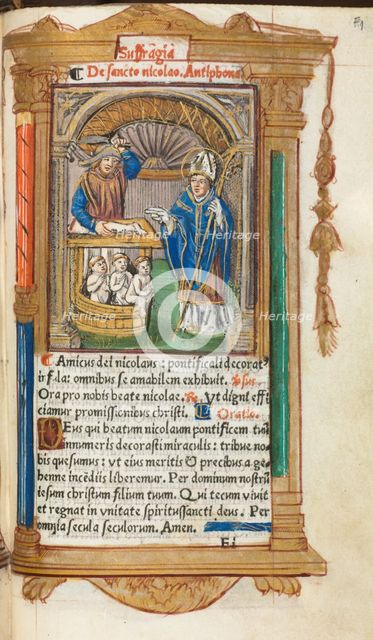 Suffrāgia
De sancto nicolao. Antiphona
Amicus dei nicolaus : pontificali decorat⁹
īfula: omnibus se amabilem exhibuit. Vsus
Ora pro nobis beate nicolae. ℞ Vt digni effi
ciamur promissionibus christi. Oratio.
Deus qui beatum nicolaum pontificem tuū
innumeris decorasti miraculis: tribue no-
bis quesumus: vt eius meritis & precibus a ge-
henne incēdiis liberemur. Per dominum nostrū
iesum christum filium tuum. Qui tecum viuit
et regnat in vnitate spiritussancti deus. Per
omnia secula seculorum. Amen.
Heritage
Heritage
Heritage
Heritage
Heritage
Heritage